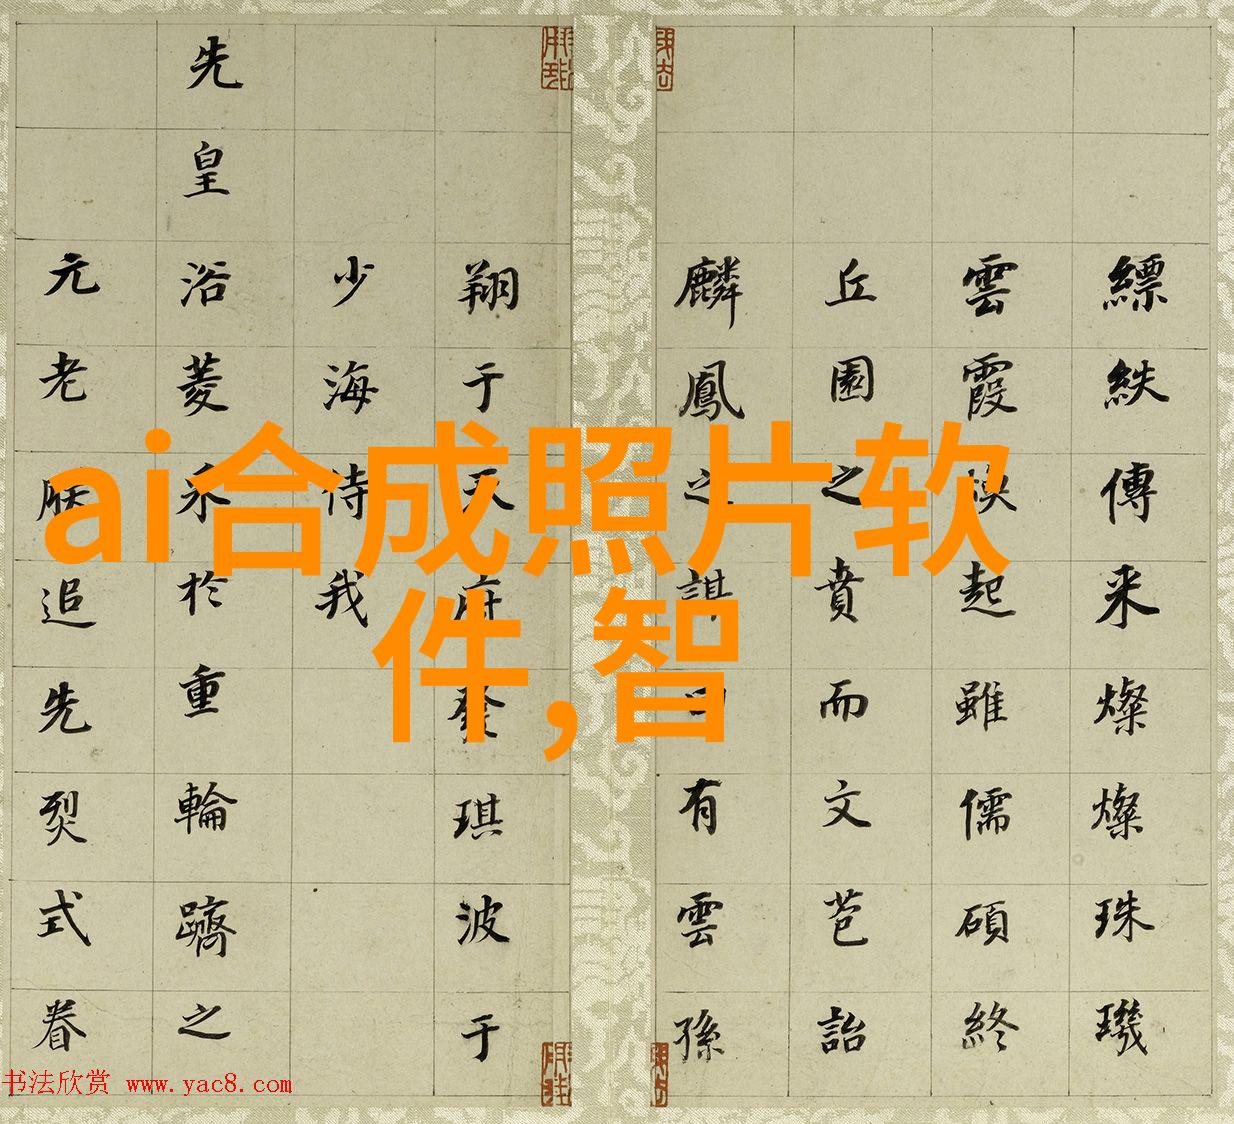 ai合成照片软
件,智
縹帙傳来燦燦珠璣
雲霞煥起雖儒碩終
丘園之賁而文芭詒
麟鳳之謀曰有雲孫
翔于天府發琪波于
少海侍我
先皇浴菱禾於重輪躋之
元老朕追先烈式眷
书法欣赏 www.yac8.com